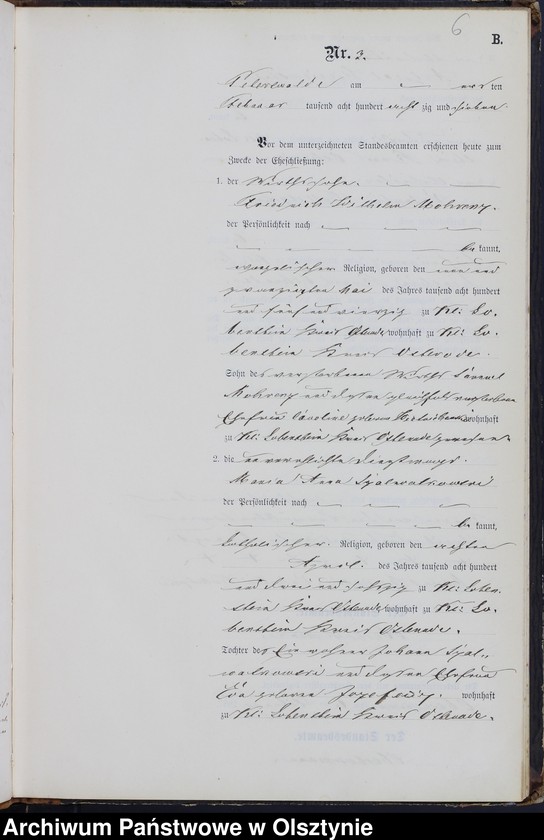 6
B.
Nr. 3.
am ten
Februar tausend acht hundert acht zig und sieben
Vor dem unterzeichneten Standesbeamten erschienen heute zum
Zwecke der Eheschließung:
1. der Wirthssohn
Friedrich Wilhelm
der Persönlichkeit nach
be kannt,
evangelischer Religion, geboren den neun und
zwanzigsten Mai des Jahres tausend acht hundert
und fünf und vierzig zu Kl: Lo-
benstein Kreis Osterode wohnhaft zu Kl: Lo-
benstein Kreis Osterode.
Sohn des verstorbenen Wirths
und dessen gleichfalls verstorbenen
Ehefrau Caroline geborene wohnhaft
zu Kl: Lobenstein Kreis Osterode gewesen
2. die unverehelichte Dienstmagd
Maria Anna
der Persönlichkeit nach
be kannt,
katholischer Religion, geboren den achten
April des Jahres tausend acht hundert
und drei und sechszig zu Kl: Loben-
stein Kreis Osterode wohnhaft zu Kl: Lo-
benstein Kreis Osterode.
Tochter des Einwohner Johann
und dessen Ehefrau
Eva geborene wohnhaft
zu Kl: Lobenstein Kreis Osterode.
Archiwum Państwowe w Olsztynie